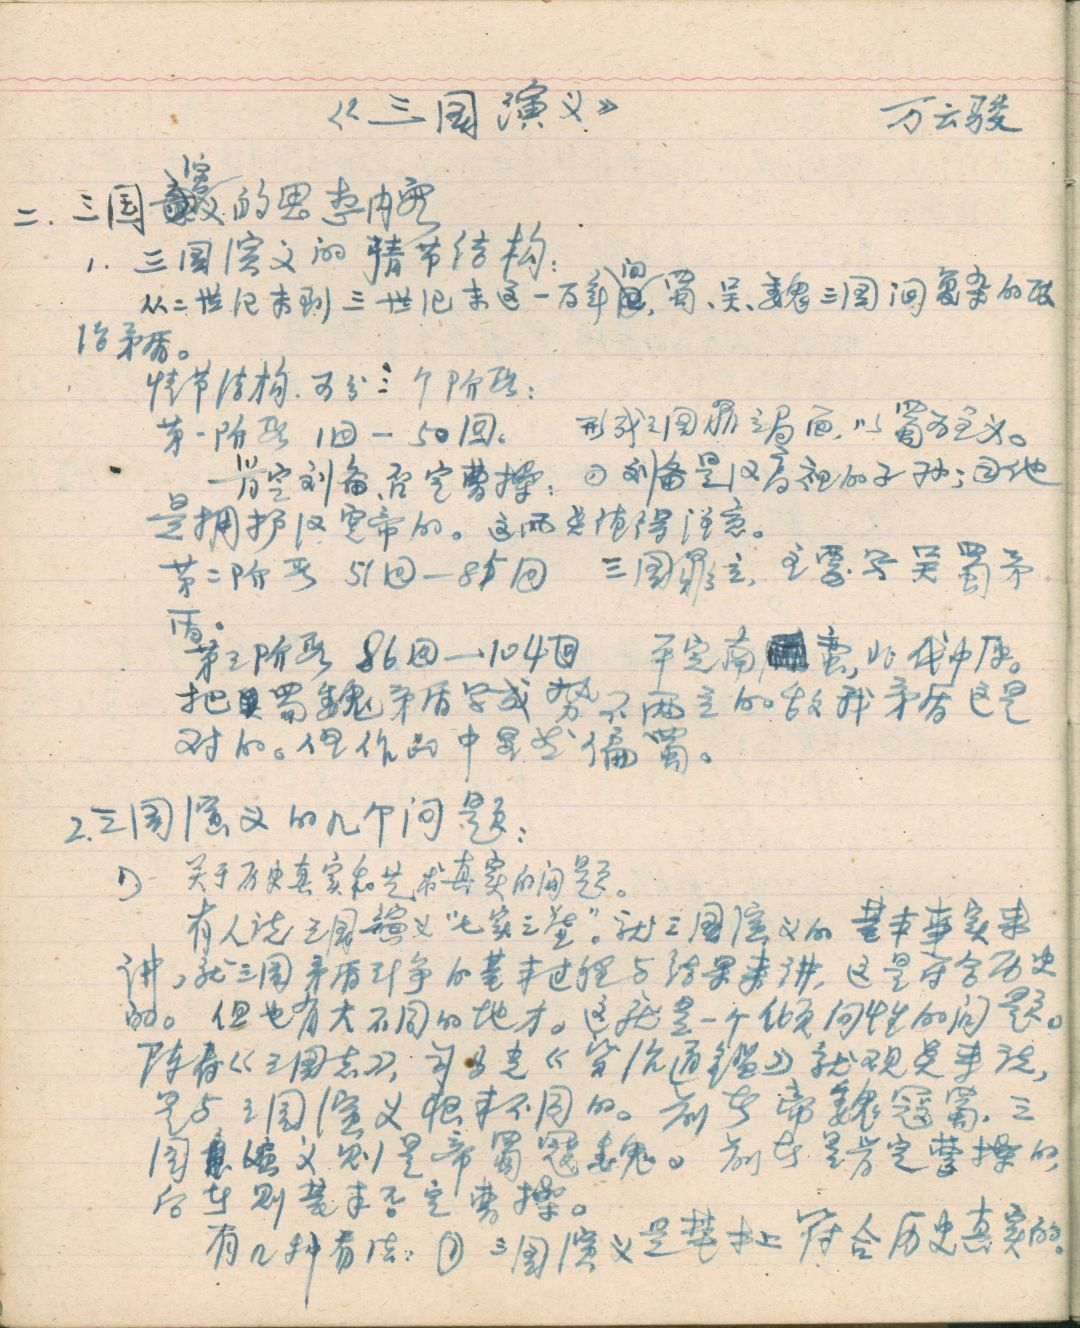 《三国演义》 万云骏
二. 三国演义的思想内容
1. 三国演义的情节结构:
从二世纪末到三世纪末这一百年间,蜀、吴、魏三国间复杂的政
治矛盾。
情节结构.可分三个阶段:
第一阶段 1回—50回。 形成三国鼎立局面,以蜀为主义。
肯定刘备,否定曹操: ① 刘备是汉高祖的子孙;因他
是拥护汉室帝的。这两点值得注意。
第二阶段 51回—85回 三国鼎立,主要写吴蜀矛
盾。
第三阶段 86回—104回 平定南蛮,北伐中原。
把蜀魏矛盾写成势不两立的敌我矛盾这是
对的。但作品中是偏蜀。
2.三国演义的几个问题:
1) 关于历史真实和艺术真实的问题。
有人说三国演义“七实三虚”。就三国演义的基本事实来
讲,就三国矛盾斗争的基本过程与结果来讲,这是符合历史
的。但也有大不同的地方。这就是一个倾向性的问题。
陈寿《三国志》,司马光《资治通鉴》就观点来说,
是与三国演义根本不同的。前者帝魏寇蜀.三
国演义则是帝蜀寇魏。前者是肯定曹操的,
后者则基本否定曹操。
有几种看法: ① 三国演义是基本上符合历史真实的。